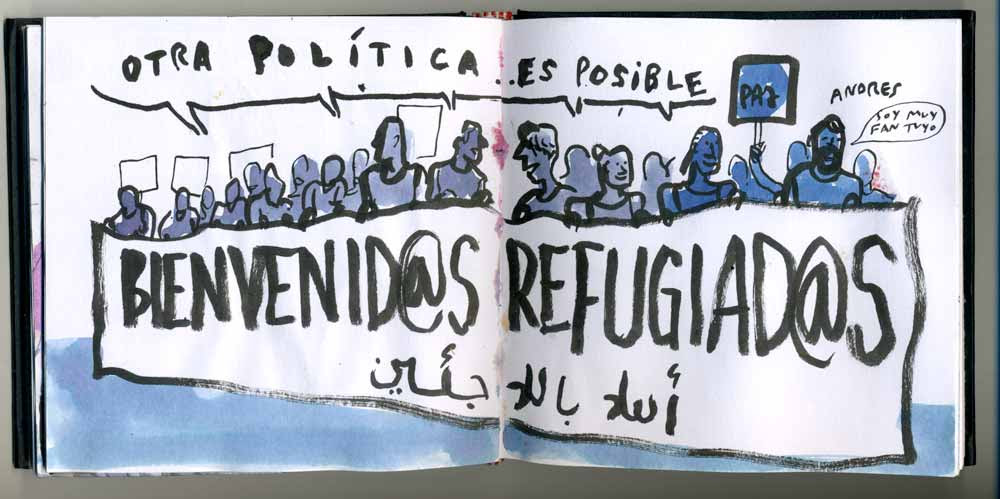 OTRA POLÍTICA...ES POSIBLE
PAZ
ANDRES
SOY MUY
FAN TUYO
BIENVENID@S REFUGIAD@S
أهلا باللاجئين